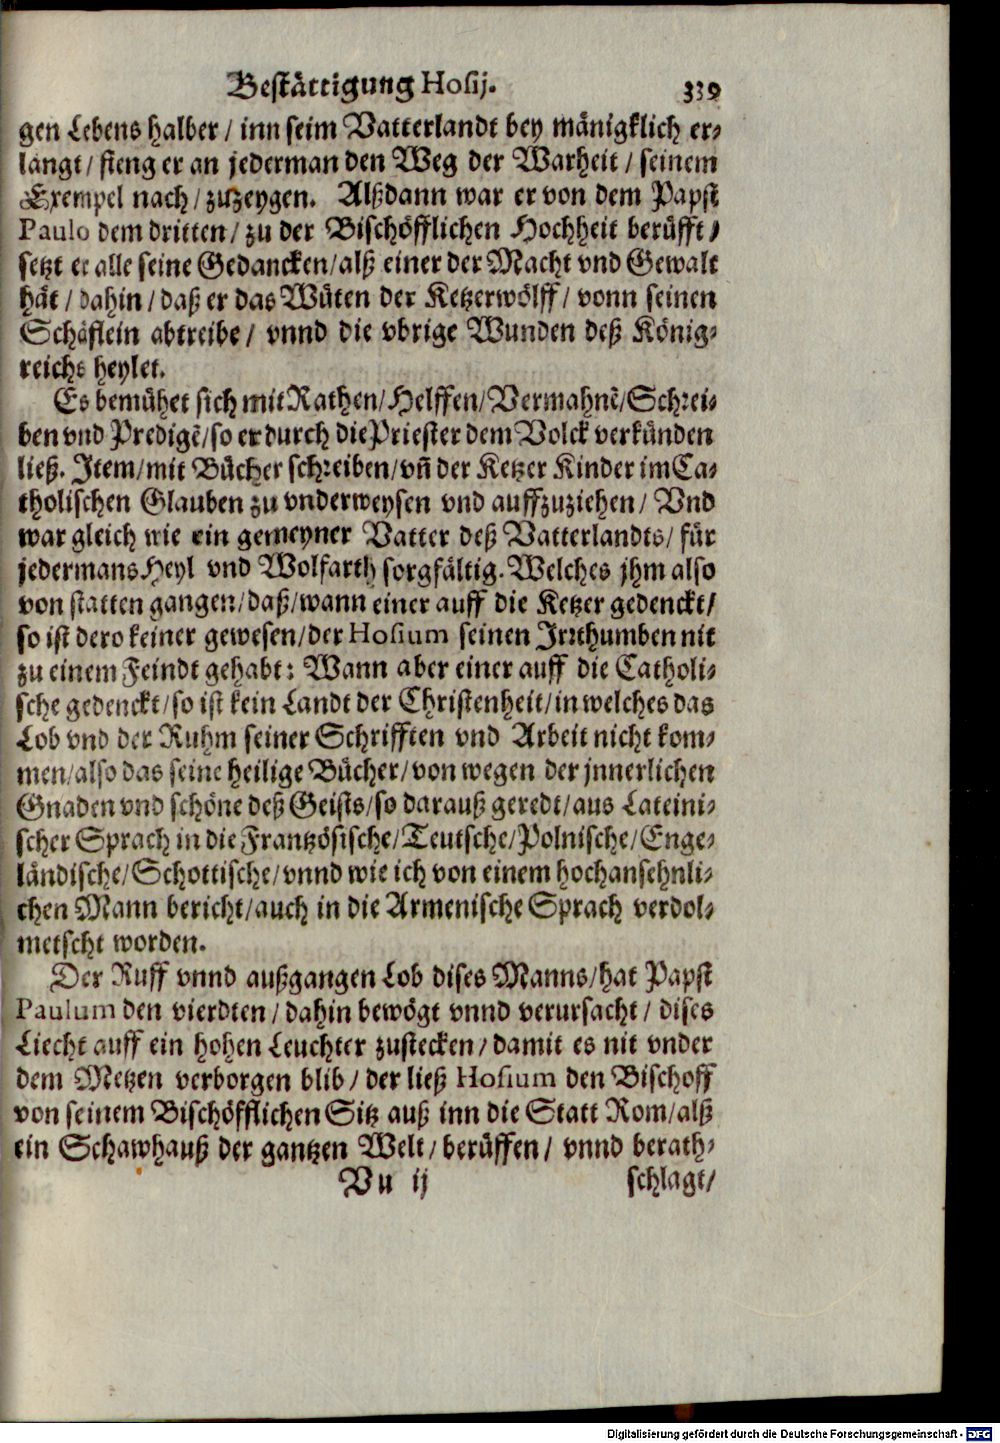 Bestättigung Hosij. 339
gen Lebens halber / inn seim Vatterlandt bey mänigklich er-
langt / fieng er an jederman den Weg der Warheit / seinem
Exempel nach / zuzeygen. Alßdann war er von dem Papst
Paulo dem dritten / zu der Bischöfflichen Hochheit berüfft /
setzt er alle seine Gedancken / alß einer der Macht vnd Gewalt
hät / dahin / daß er das Wüten der Ketzerwölff / vonn seinen
Schäflein abtreibe / vnnd die vbrige Wunden deß König-
reichs heylet.
Es bemühet sich mit Rathen / Helffen / Vermahnẽ / Schrei-
ben vnd Predigẽ / so er durch die Priester dem Volck verkünden
ließ. Item / mit Bücher schreiben / vñ der Ketzer Kinder im Ca-
tholischen Glauben zu vnderweysen vnd auffzuziehen / Vnd
war gleich wie ein gemeyner Vatter deß Vatterlandts / für
jedermans Heyl vnd Wolfarth sorgfältig. Welches jhm also
von statten gangen / daß / wann einer auff die Ketzer gedenckt /
so ist dero keiner gewesen / der Hosium seinen Irrthumben nit
zu einem Feindt gehabt: Wann aber einer auff die Catholi-
sche gedenckt / so ist kein Landt der Christenheit / in welches das
Lob vnd der Ruhm seiner Schrifften vnd Arbeit nicht kom-
men / also das seine heilige Bücher / von wegen der jnnerlichen
Gnaden vnd schöne deß Geists / so darauß geredt / aus Lateini-
scher Sprach in die Frantzösische / Teutsche / Polnische / Enge-
ländische / Schottische / vnnd wie ich von einem hochansehnli-
chen Mann bericht / auch in die Armenische Sprach verdol-
metscht worden.
Der Ruff vnnd außgangen Lob dises Manns / hat Papst
Paulum den vierdten / dahin bewögt vnnd verursacht / dises
Liecht auff ein hohen Leuchter zustecken / damit es nit vnder
dem Metzen verborgen blib / der ließ Hosium den Bischoff
von seinem Bischöfflichen Sitz auß inn die Statt Rom / alß
ein Schawhauß der gantzen Welt / berüffen / vnnd berath-
Vu ij schlagt /
Digitalisierung gefördert durch die Deutsche Forschungsgemeinschaft - DFG